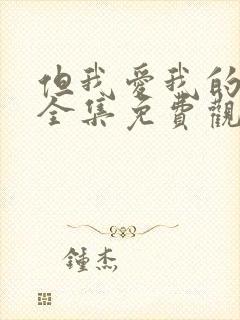 但我愛我的
全集免費觀
鍾杰